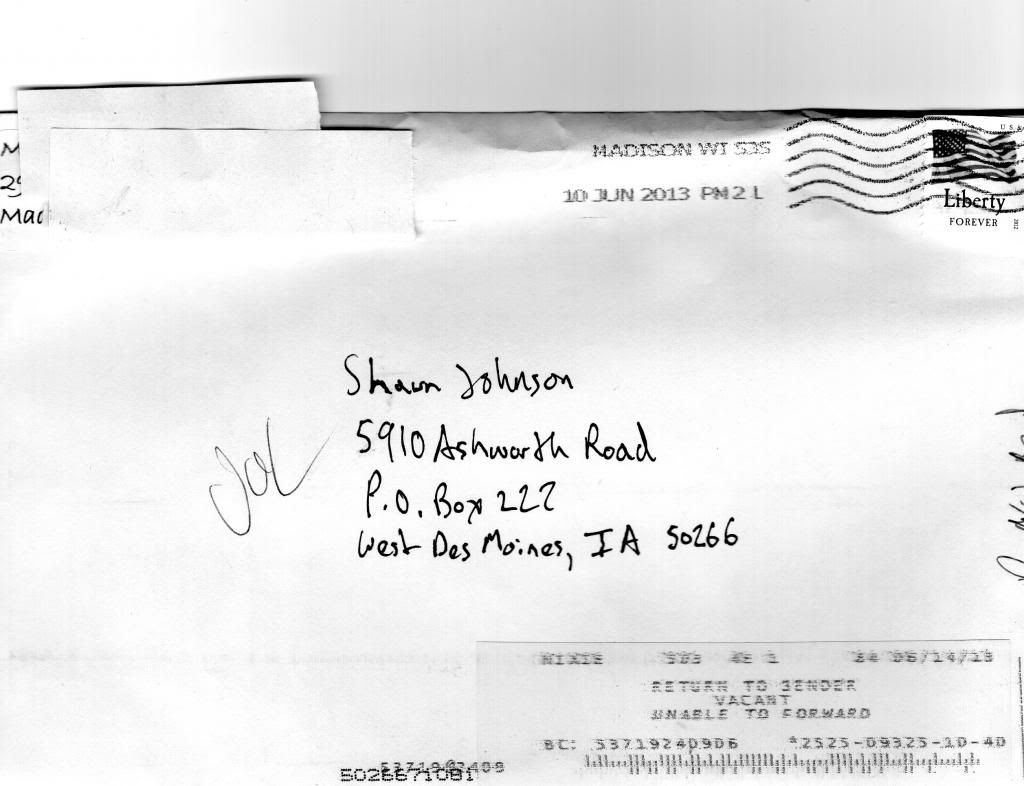 M
29
Mad
MADISON WI 535
10 JUN 2013 PM 2 L
USA
Liberty
FOREVER
2012
Shawn Johnson
5910 Ashworth Road
P.O. Box 222
West Des Moines, IA 50266
NIXIE 503 4E 1 24 06/14/13
RETURN TO SENDER
VACANT
UNABLE TO FORWARD
BC: 53719240906 *2525-09325-10-40
5026671081